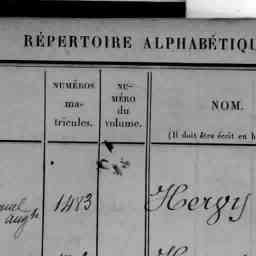 RÉPERTOIRE ALPHABÉTIQU
NUMÉROS
ma-
tricules.
NU-
MÉRO
du
volume.
NOM.
(Il doit être écrit en b
1483
Hergy